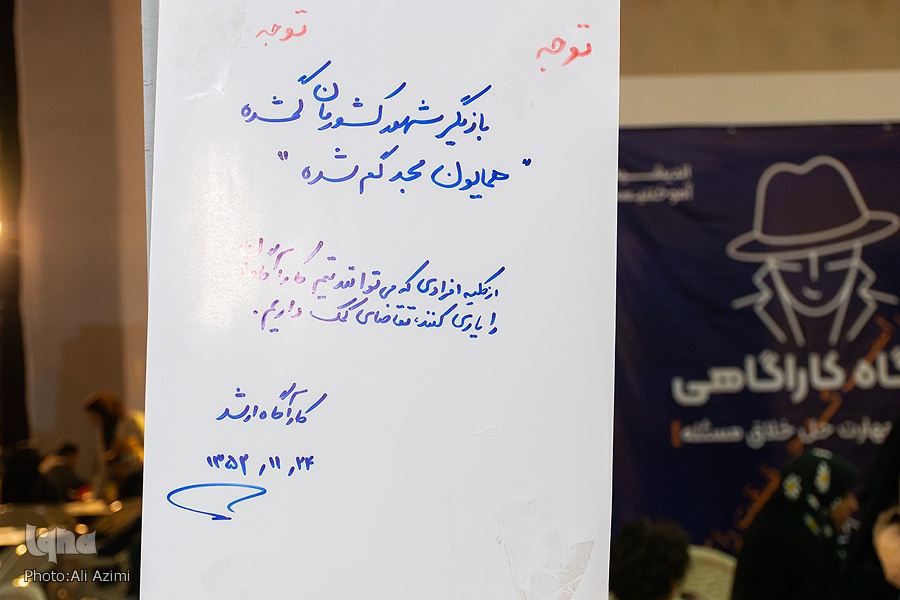 توجه
توجه
بازیگر مشهور کشورمان گمشده
"همایون مجد گم شده"
از کلیه افرادی که می توانند تیم کارآگاهان
را یاری کنند، تقاضای کمک داریم.
کارآگاه ارشد
۱۳۵۲٫۱۱٫۲۴
گاه کاراگاهی
مهارت حل خلاق مسئله
iqna
Photo:Ali Azimi